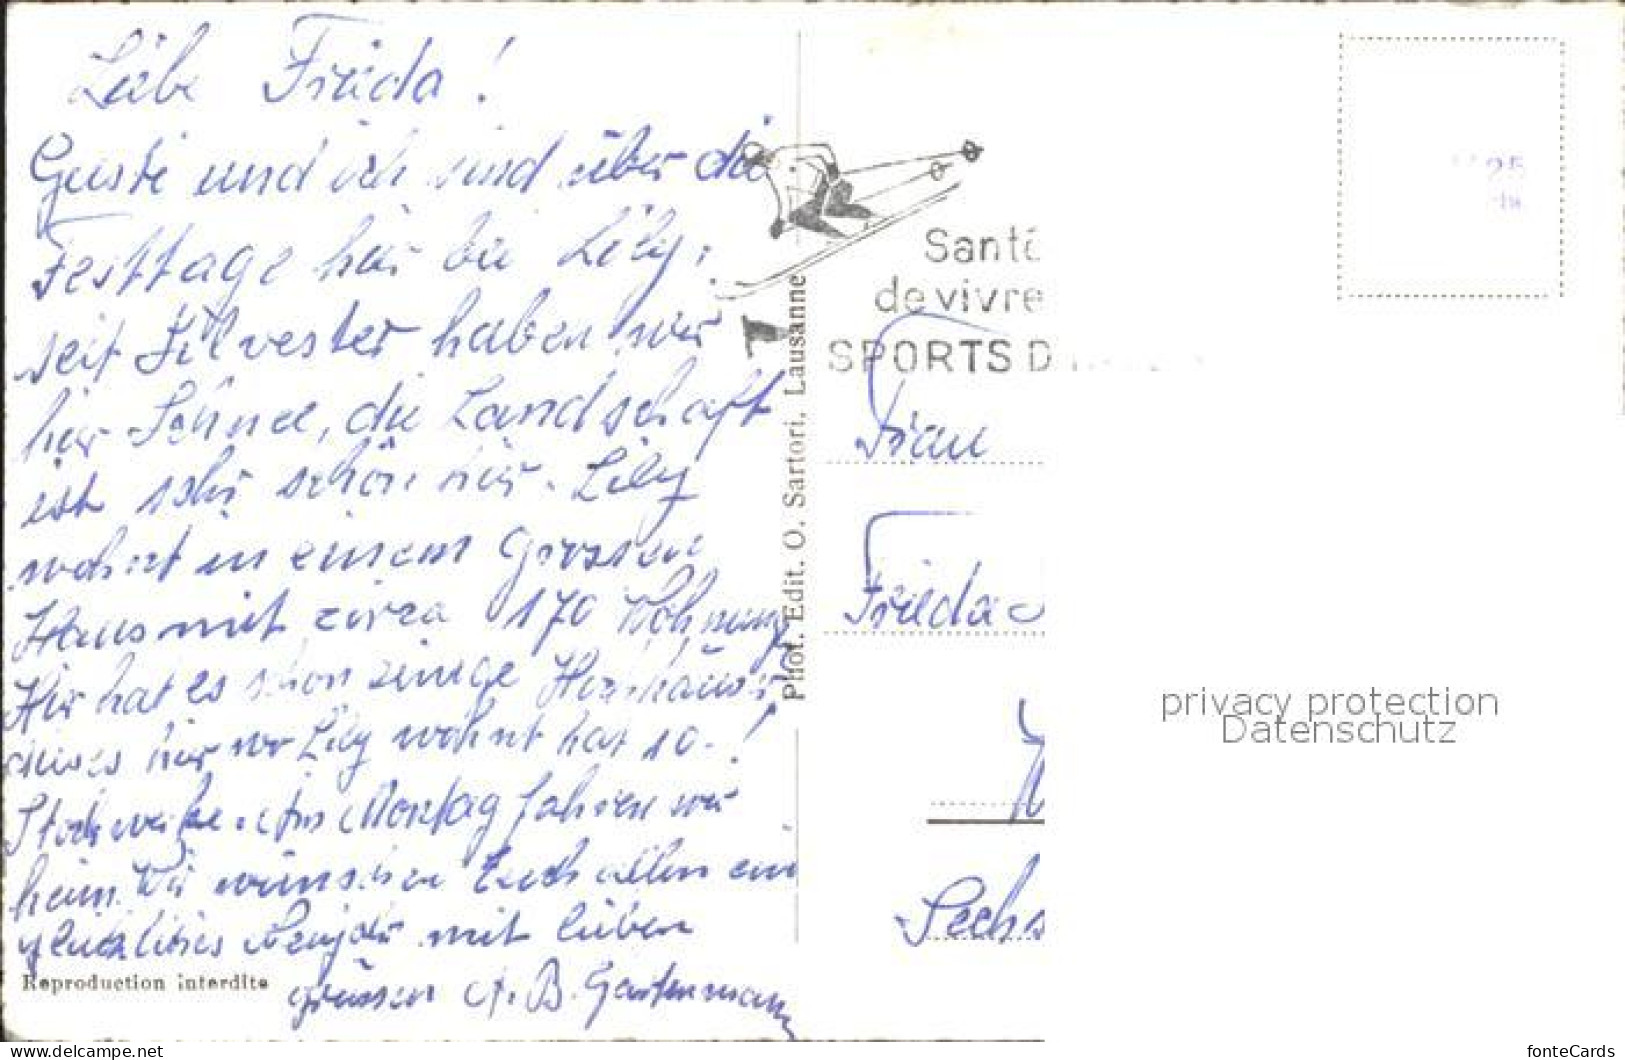 Liebe Frieda!
Gusti und ich sind über die
Festtage hier bei Lily,
seit Silvester haben wir
hier Schnee, die Landschaft
ist sehr schön hier. Lily
wohnt in einem Grossen
Haus mit zirza 170 Wohnung
Hir hat es schon einige Hochhäuser
dieses hier wo Lily wohnt hat 10.!
Stockwerke. Am Montag fahren wir
heim. Wir wünschen Euch allen ein
glückliches Neujahr mit lieben
grüssen A. B. Gartenmann
Reproduction interdite
Phot. Edit. O. Sartori, Lausanne
Santé
de vivre
SPORTS D
25
Frau
Frieda
Sechs
privacy protection
Datenschutz
www.delcampe.net
fonteCards